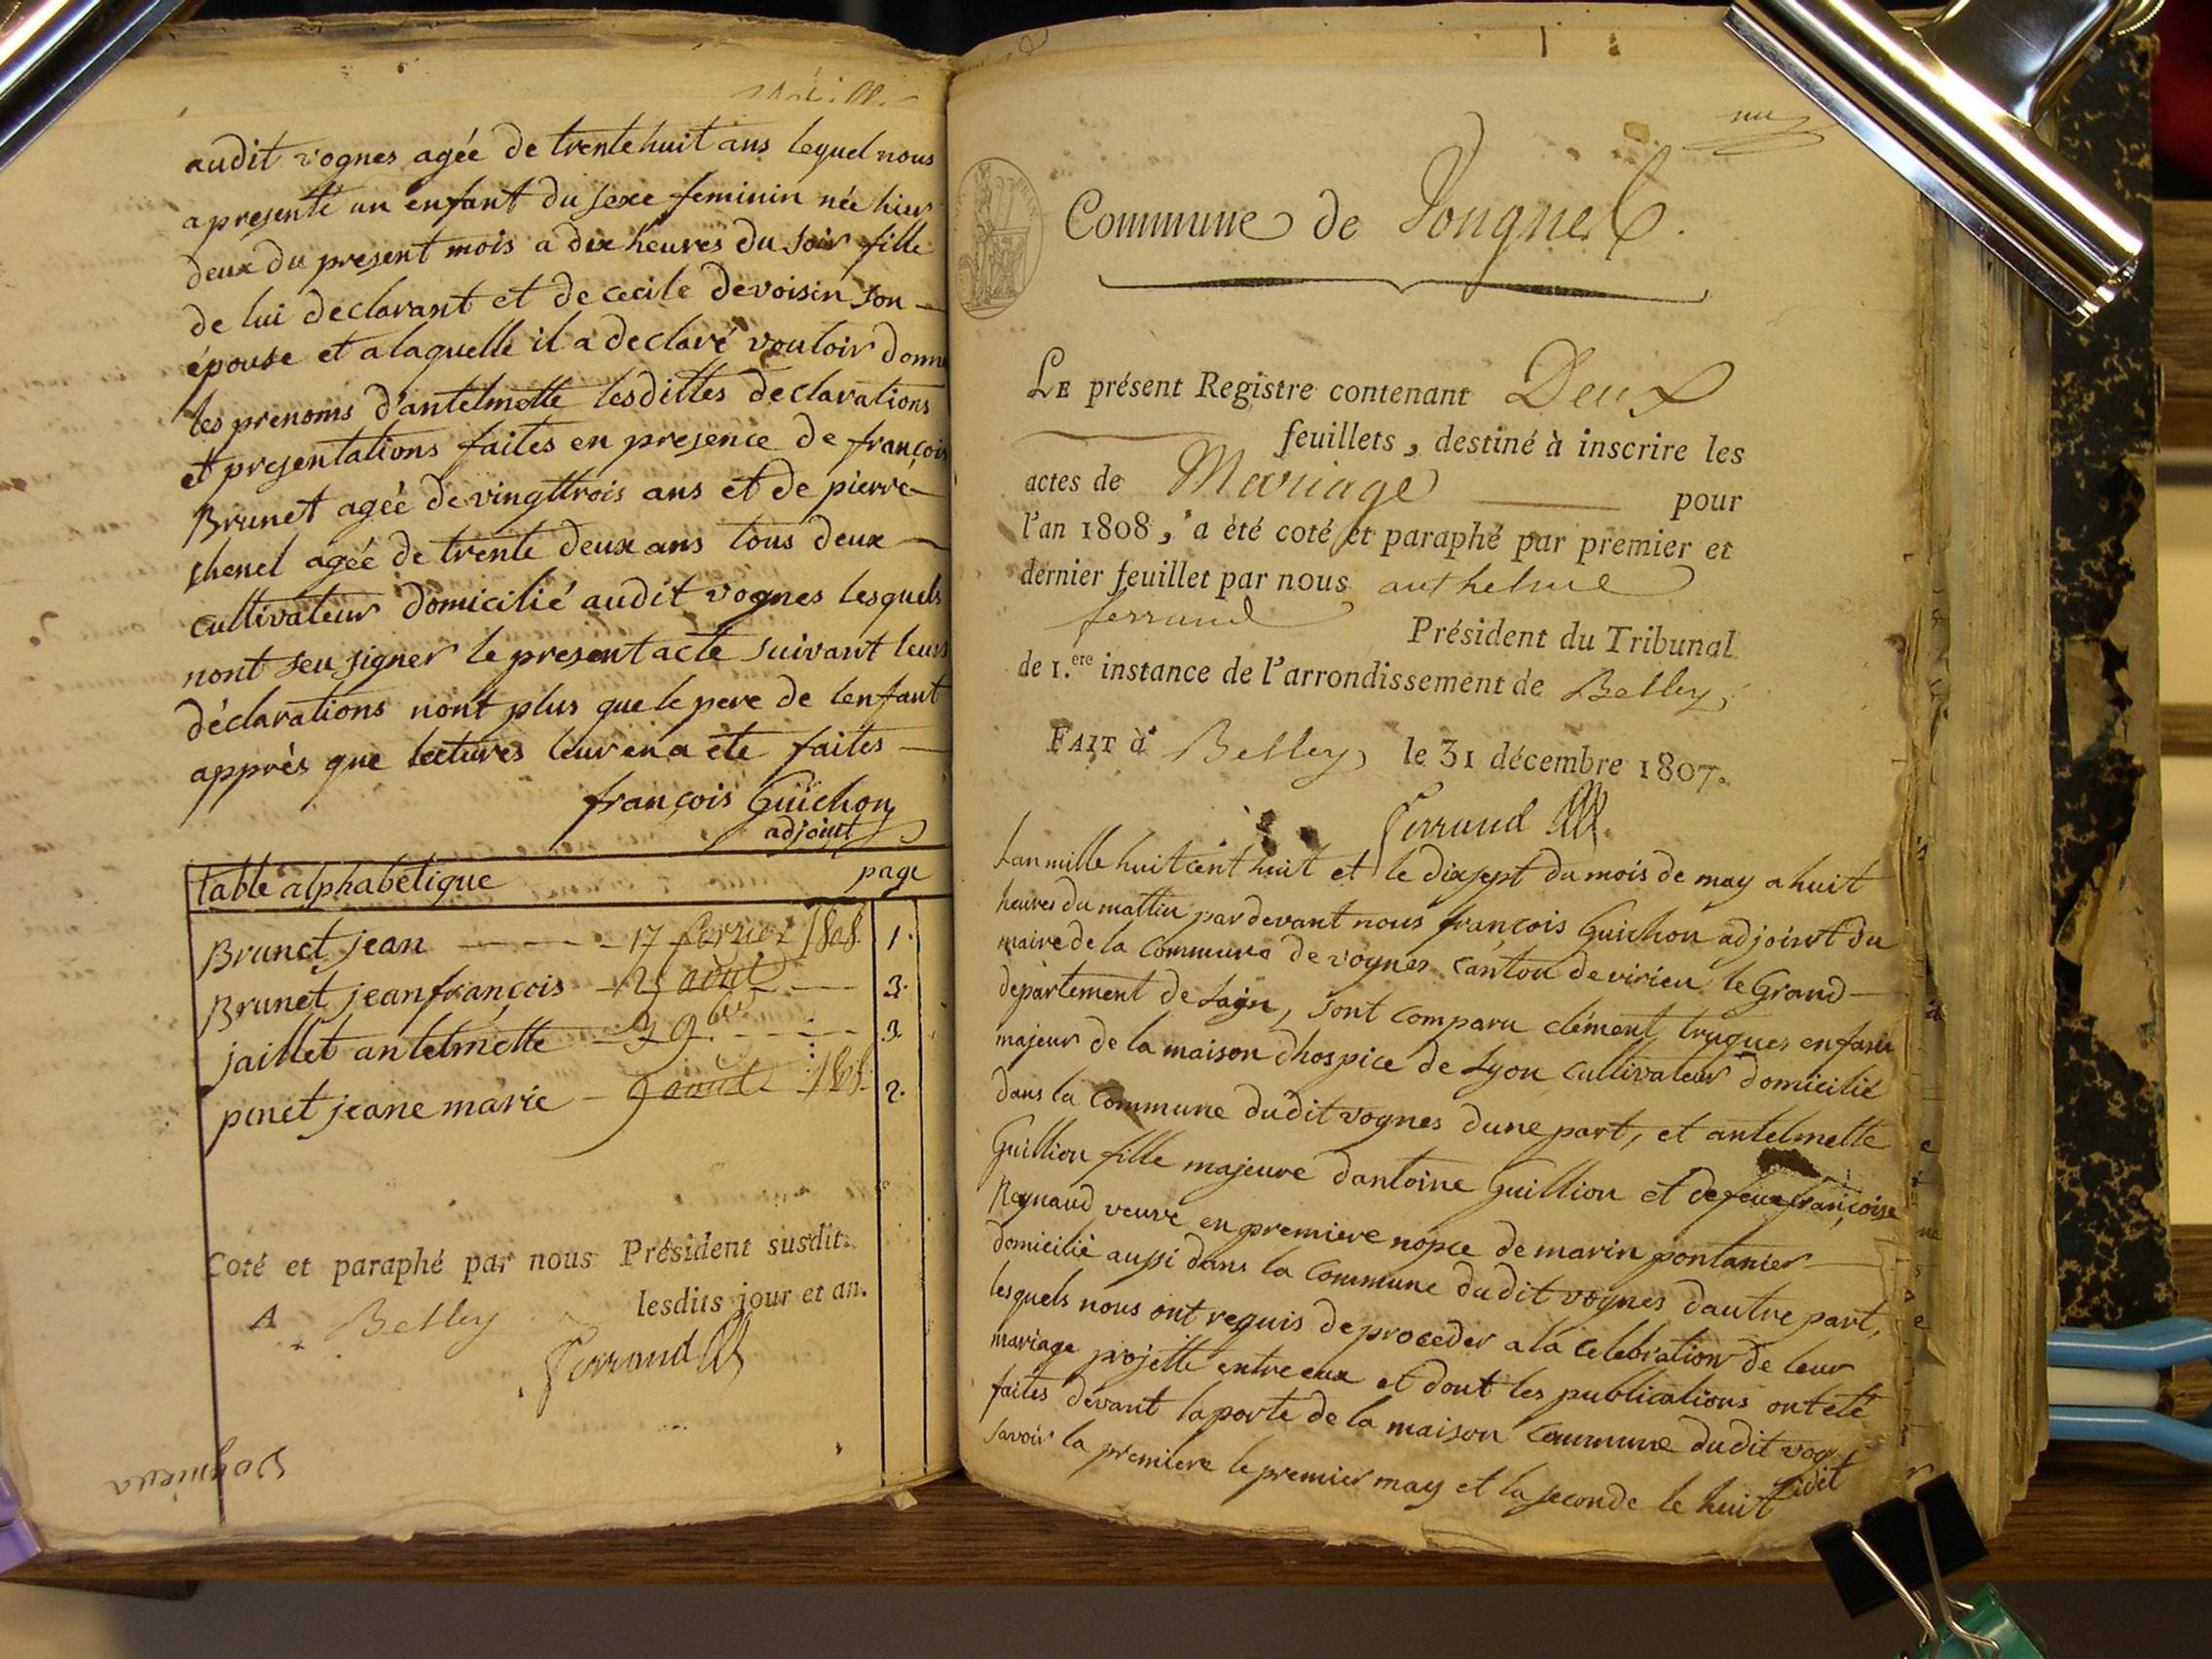 audit vognes agée de trente huit ans lequel nous
a presenté un enfant du sexe feminin née hier
deux du present mois a dix heures du soir fille
de lui declarant et de cecile devoisin son
épouse et a laquelle il a declaré vouloir donn
les prenoms d'antelmette lesdittes declarations
et presentations faites en presence de françois
Brunet agée de vingt trois ans et de pierre
agée de trente deux ans tous deux
cultivateur domicilié audit vognes lesquels
nont seu signer le present acte suivant leurs
déclarations nont plus que le pere de lenfant
apprès que lectures leur en a été faites
françois Guichon
adjoint
table alphabetique page
Brunet jean 17 fevrier 1808 1.
Brunet jean françois août 3.
jaillet antelmette 3 9bre 3.
penet jeane marie 9 août 1808 2.
Coté et paraphé par nous Président susdit.
lesdits jour et an.
A Belley
Ferrand
Commune de
LE présent Registre contenant Deux
feuillets, destiné à inscrire les
actes de Mariage pour
l'an 1808, a été coté et paraphé par premier et
dernier feuillet par nous anthelme
ferrand Président du Tribunal
de 1.ere instance de l'arrondissement de Belley,
FAIT à Belley, le 31 décembre 1807.
Ferrand
Lan mille huit cent huit et le dixsept du mois de may a huit
heures du mattin par devant nous françois Guichon adjoint du
maire de la Commune de vognes canton de virieu le Grand
département de Lain, sont comparu clément truques enfant
majeur de la maison dhospice de Lyon cultivateur domicilié
dans la Commune dudit vognes dune part, et antelmette
Guillion fille majeure dantoine Guillion et de feue françoise
Reynaud veuve en premiere nopce de marin pontanier
domicilié aussi dans la Commune dudit vognes dautre part,
lesquels nous ont requis de proceder a la celebration de leur
mariage projetté entre eux et dont les publications ont été
faites devant la porte de la maison Commune dudit vog
savoir la premiere le premier may et la seconde le huit